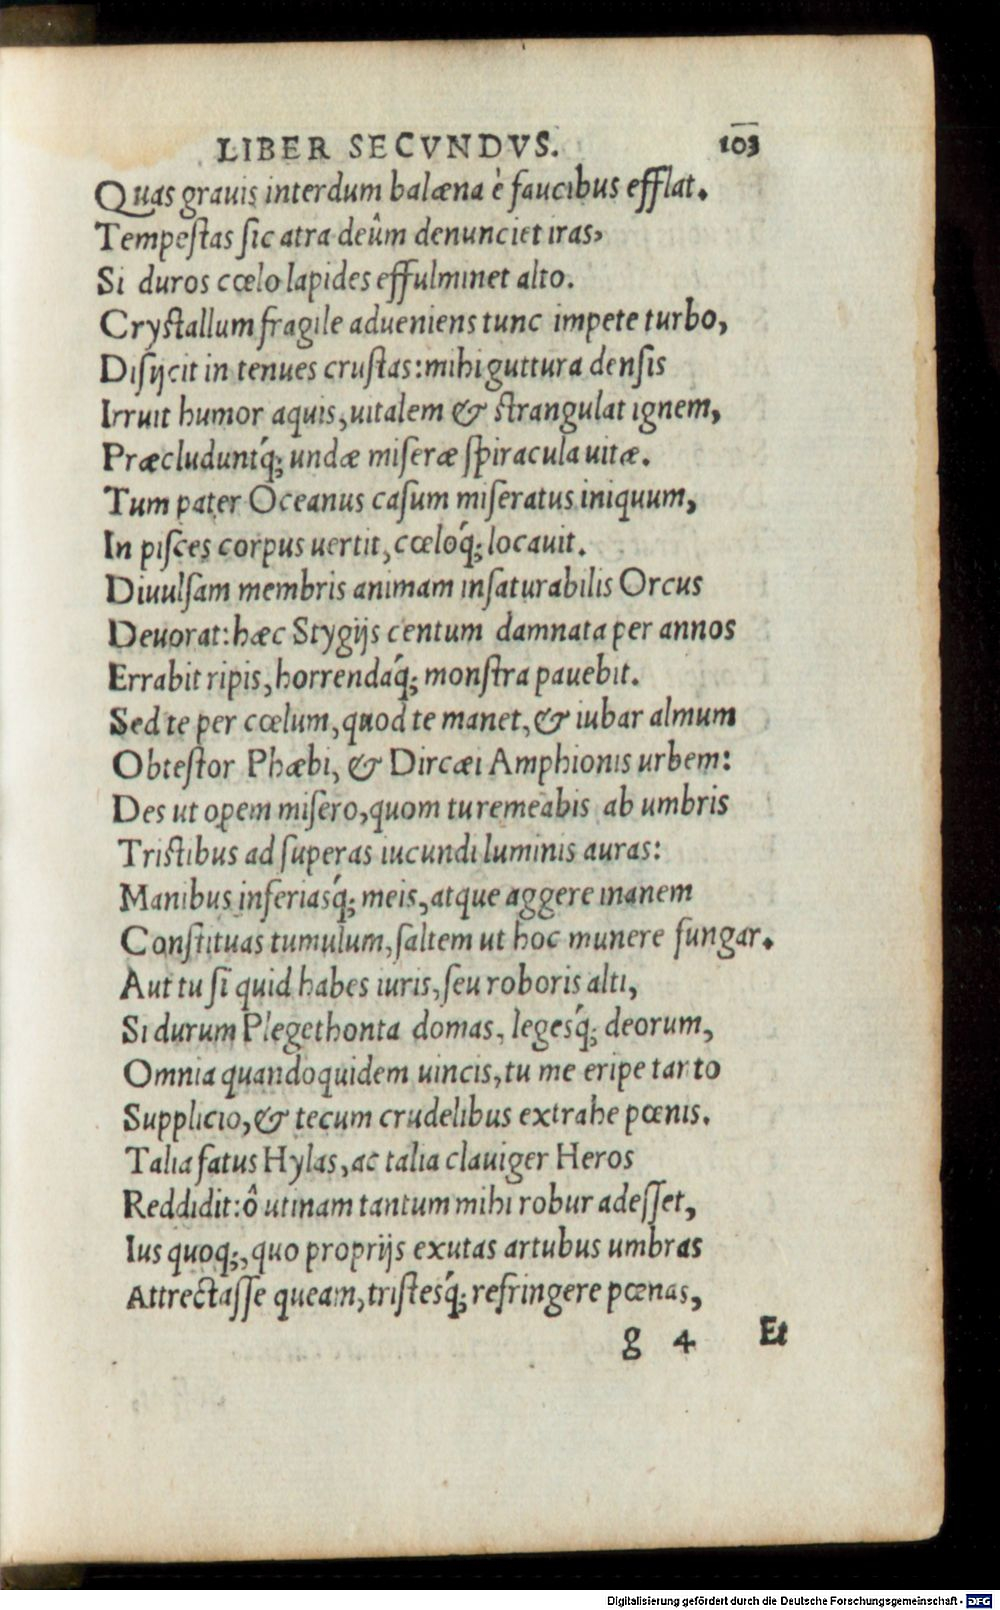 LIBER SECVNDVS. 103
Quas grauis interdum balæna è faucibus efflat.
Tempeſtas ſic atra deûm denunciet iras,
Si duros cœlo lapides effulminet alto.
Cryſtallum fragile adueniens tunc impete turbo,
Diſijcit in tenues cruſtas: mihi guttura denſis
Irruit humor aquis, uitalem & ſtrangulat ignem,
Præcluduntq́; undæ miſeræ ſpiracula uitæ.
Tum pater Oceanus caſum miſeratus iniquum,
In piſces corpus uertit, cœloq́; locauit.
Diuulſam membris animam inſaturabilis Orcus
Deuorat: hæc Stygijs centum damnata per annos
Errabit ripis, horrendaq́; monſtra pauebit.
Sed te per cœlum, quod te manet, & iubar almum
Obteſtor Phæbi, & Dircæi Amphionis urbem:
Des ut opem miſero, quom tu remeabis ab umbris
Triſtibus ad ſuperas iucundi luminis auras:
Manibus inferiasq́; meis, atque aggere inanem
Conſtituas tumulum, ſaltem ut hoc munere fungar.
Aut tu ſi quid habes iuris, ſeu roboris alti,
Si durum Plegethonta domas, legesq́; deorum,
Omnia quandoquidem uincis, tu me eripe tanto
Supplicio, & tecum crudelibus extrahe pœnis.
Talia fatus Hylas, ac talia clauiger Heros
Reddidit: ô utinam tantum mihi robur adeſſet,
Ius quoq;, quo proprijs exutas artubus umbras
Attrectaſſe queam, triſtesq́; refringere pœnas,
g 4 Et
Digitalisierung gefördert durch die Deutsche Forschungsgemeinschaft - DFG